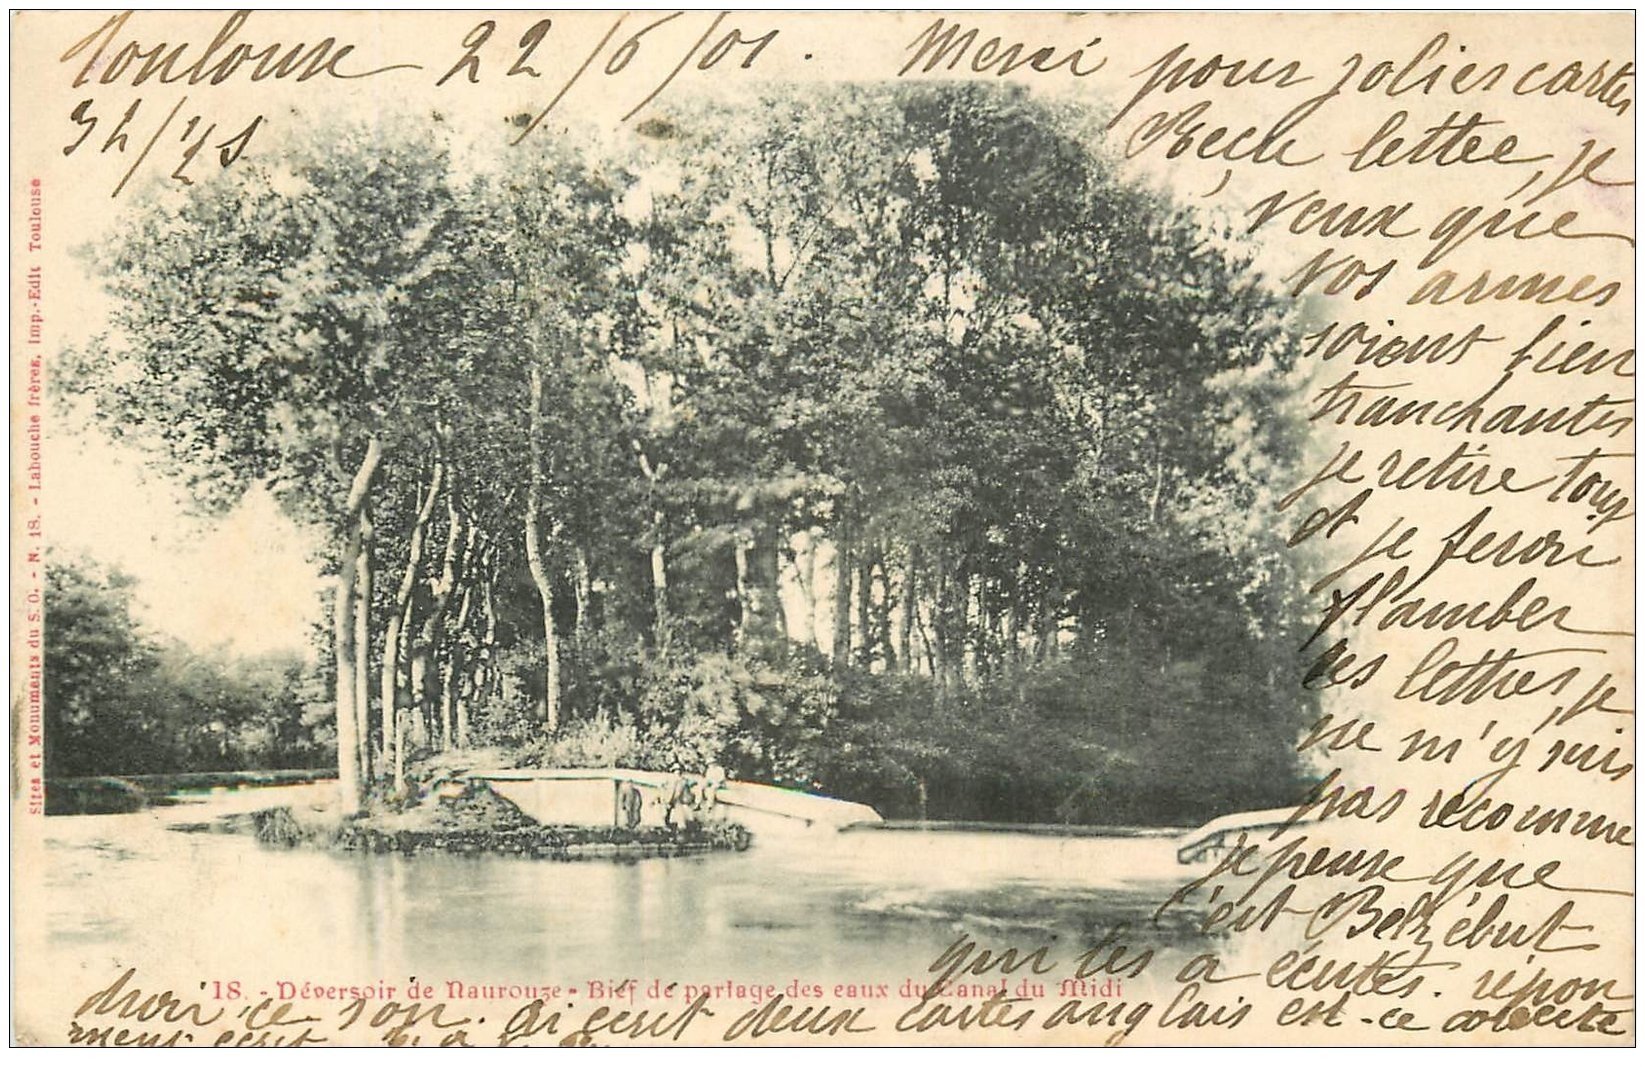 Toulouse 22/6/01. Merci pour jolies cartes
34/45
Reçu lettre, je
veux que
vos armes
soient bien
tranchantes
je retire tout
et je ferai
flamber
les lettres, je
ne m'y suis
pas reconnue
je pense que
c'est Belzébut
qui les a écrites. répon
drai ce soir. ai écrit deux cartes anglais est-ce correcte
ment écrit
18. - Déversoir de Naurouze - Bief de partage des eaux du Canal du Midi
Sites et Monuments du S. O. - N. 18. - Labouche frères, Imp.-Edit Toulouse